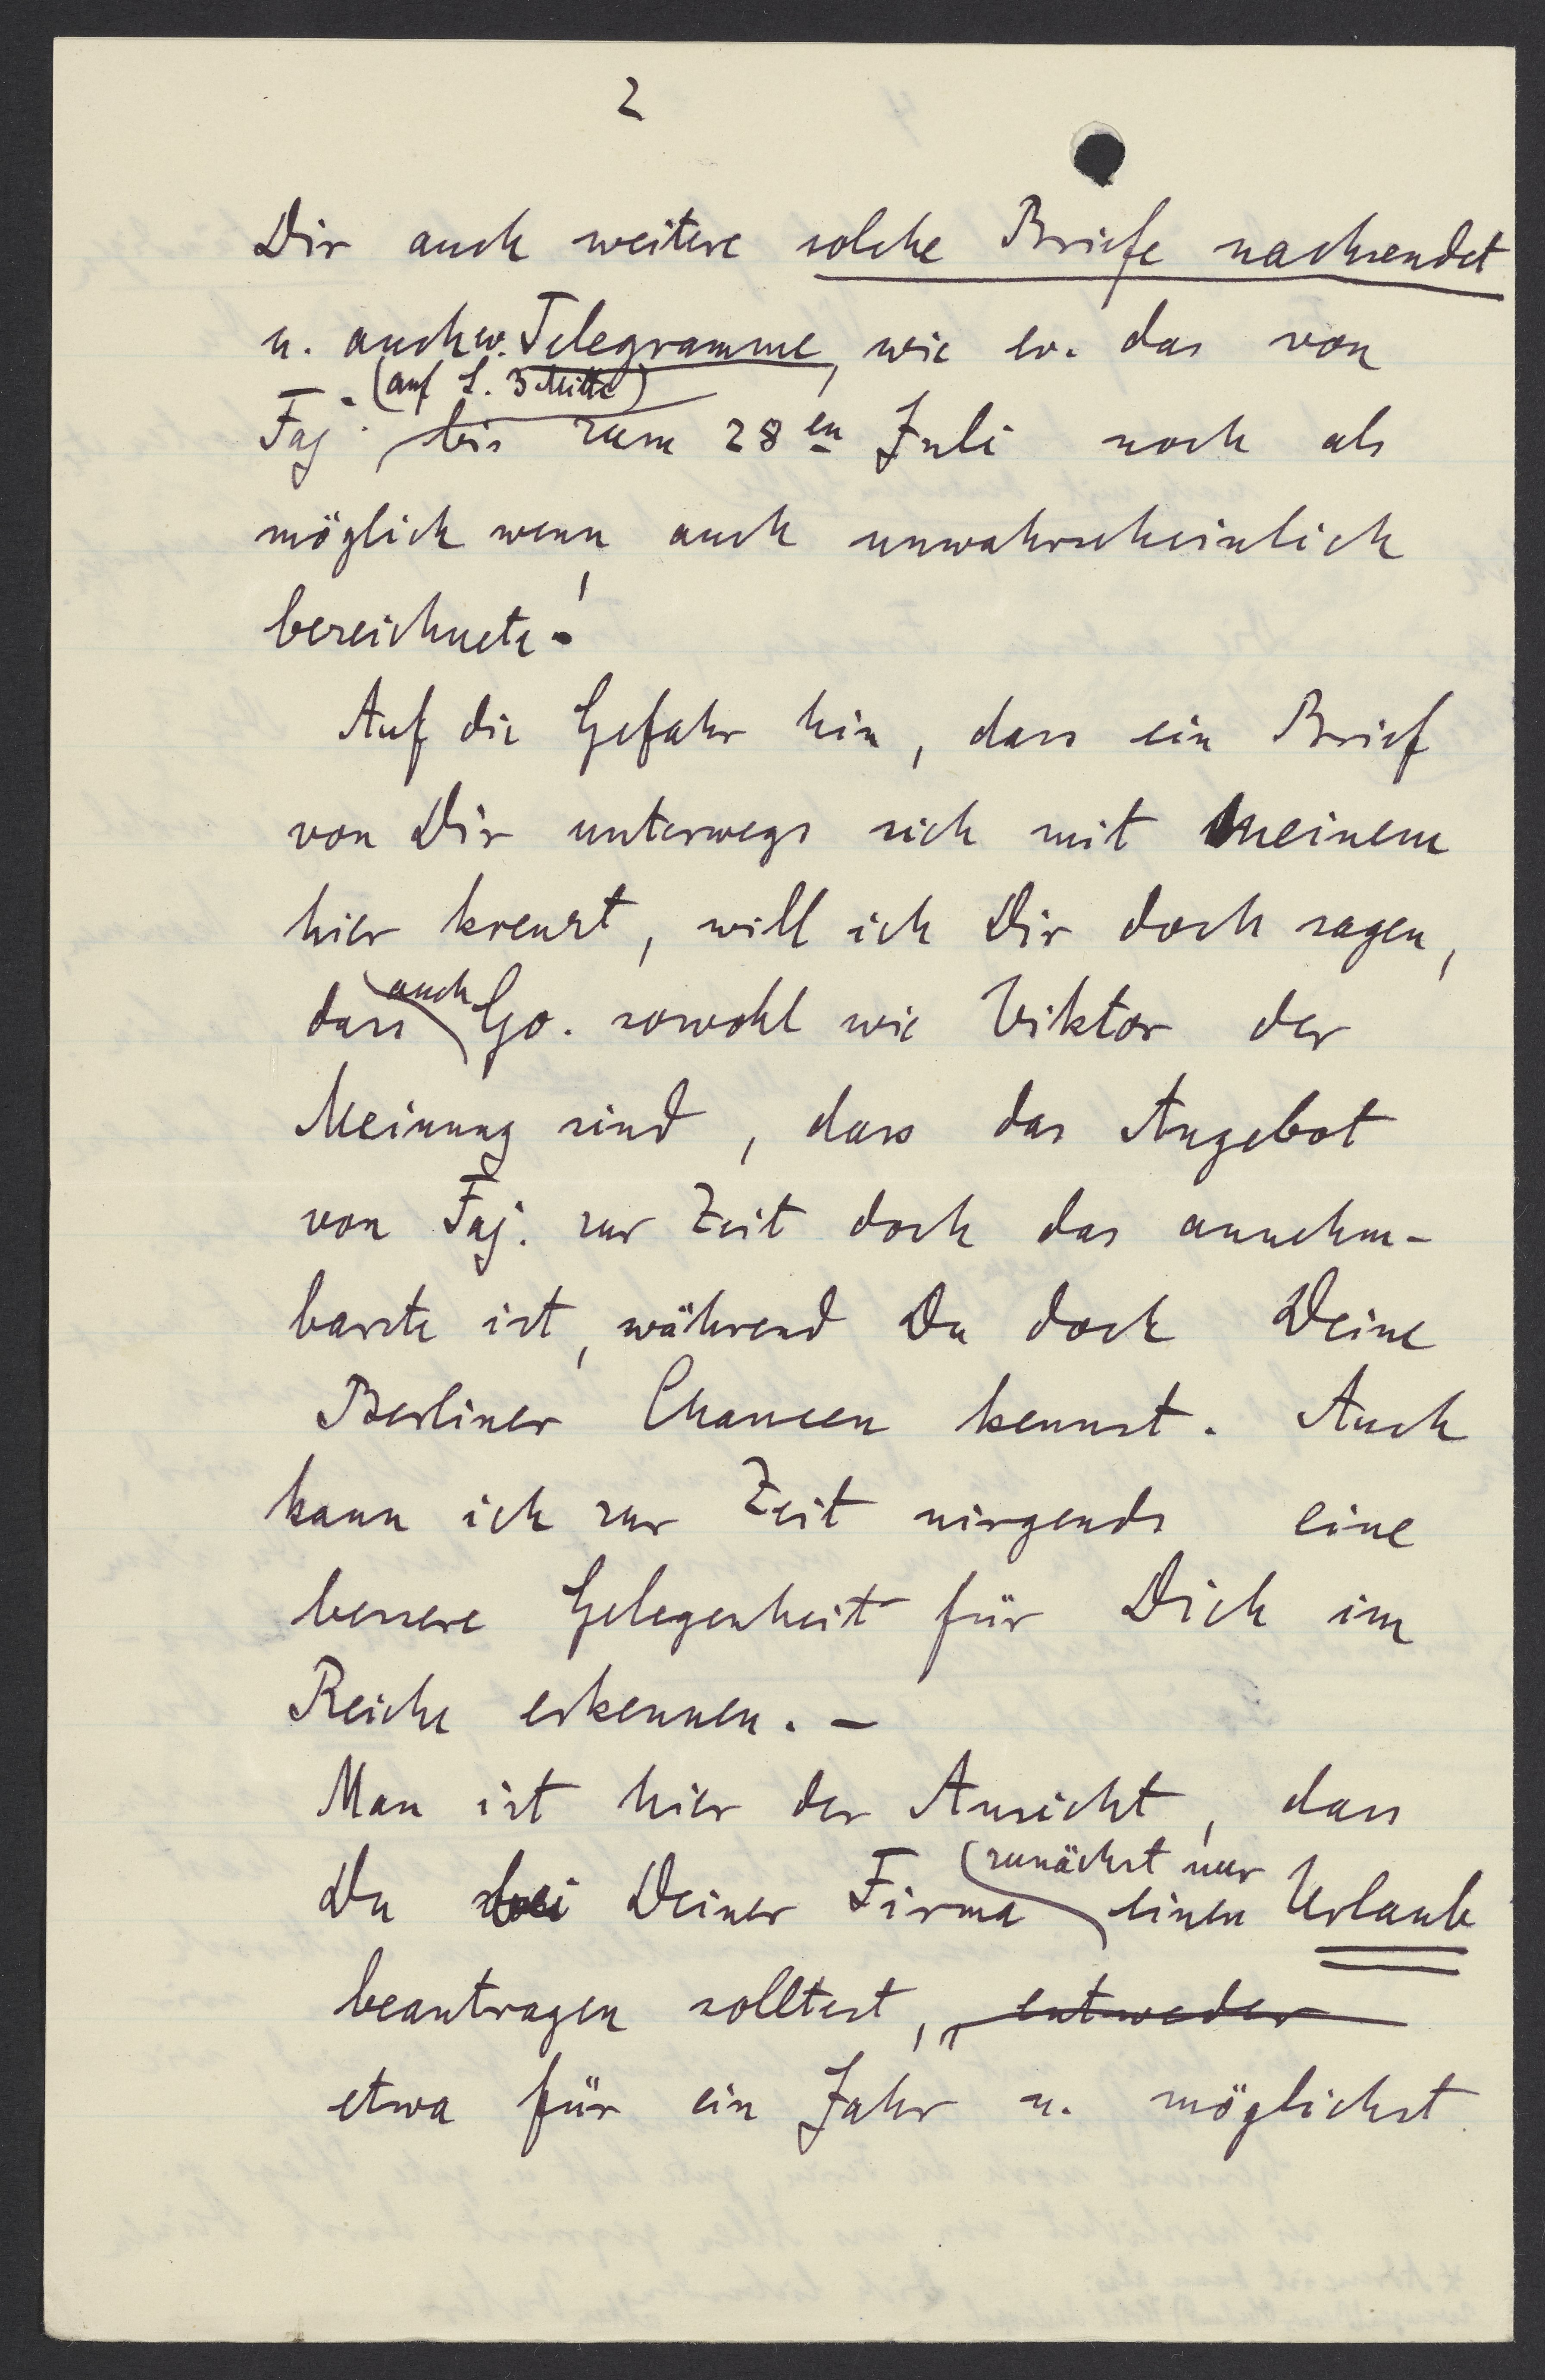 2
Dir auch weitere solche Briefe nachsendet
u. auch w. Telegramme, wie ev. das von
Faj. (auf S. 3 Mitte) bis zum 28en Juli noch als
möglich wenn auch unwahrscheinlich
bezeichnete!
Auf die Gefahr hin, dass ein Brief
von Dir unterwegs sich mit meinem
hier kreuzt, will ich Dir doch sagen,
dass auch Go. sowohl wie Viktor der
Meinung sind, dass das Angebot
von Faj. zur Zeit doch das annehm-
barste ist, während Du doch Deine
Berliner Chancen kennst. Auch
kann ich zur Zeit nirgends eine
bessere Gelegenheit für Dich im
Reiche erkennen. -
Man ist hier der Ansicht, dass
Du bei Deiner Firma zunächst nur einen Urlaub
beantragen solltest, entweder
etwa für ein Jahr u. möglichst